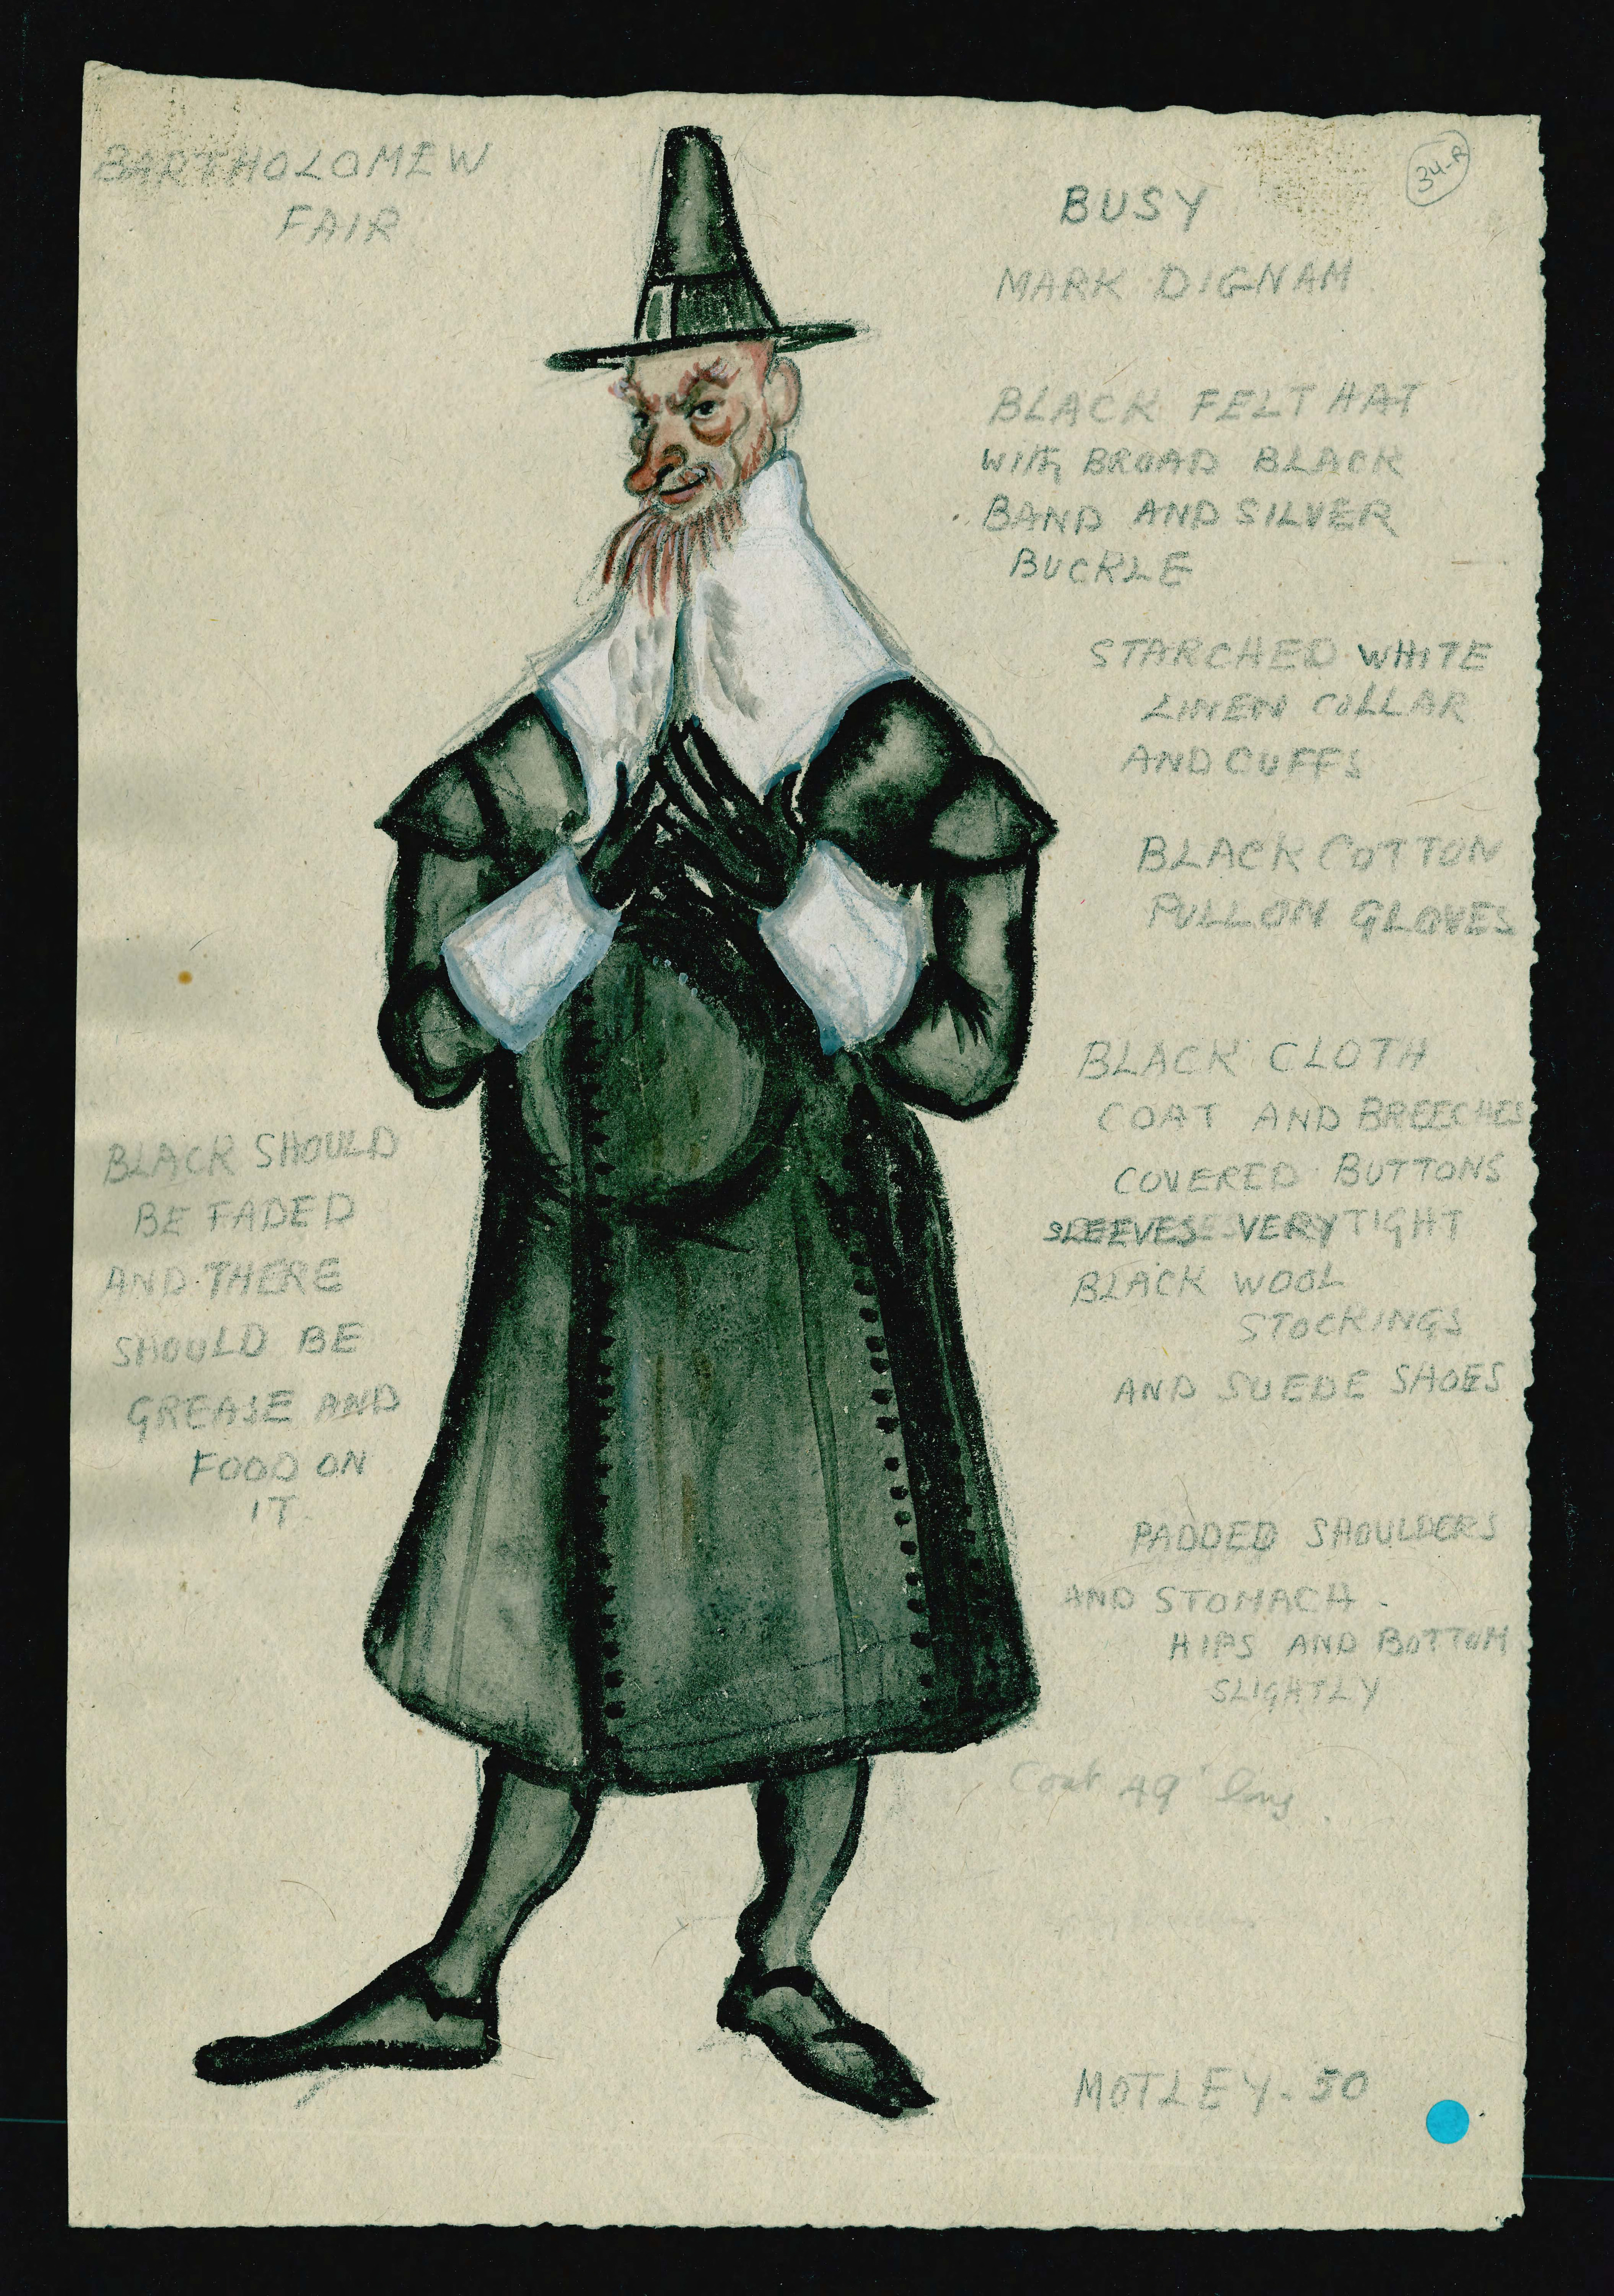 BARTHOLOMEW
FAIR
34-R
BUSY
MARK DIGNAM
BLACK FELT HAT
WITH BROAD BLACK
BAND AND SILVER
BUCKLE
STARCHED WHITE
LINEN COLLAR
AND CUFFS
BLACK COTTON
PULL ON GLOVES
BLACK CLOTH
COAT AND BREECHES
COVERED BUTTONS
SLEEVES VERY TIGHT
BLACK WOOL
STOCKINGS
AND SUEDE SHOES
BLACK SHOULD
BE FADED
AND THERE
SHOULD BE
GREASE AND
FOOD ON
IT.
PADDED SHOULDERS
AND STOMACH.
HIPS AND BOTTOM
SLIGHTLY
Coat 49" long.
MOTLEY-50